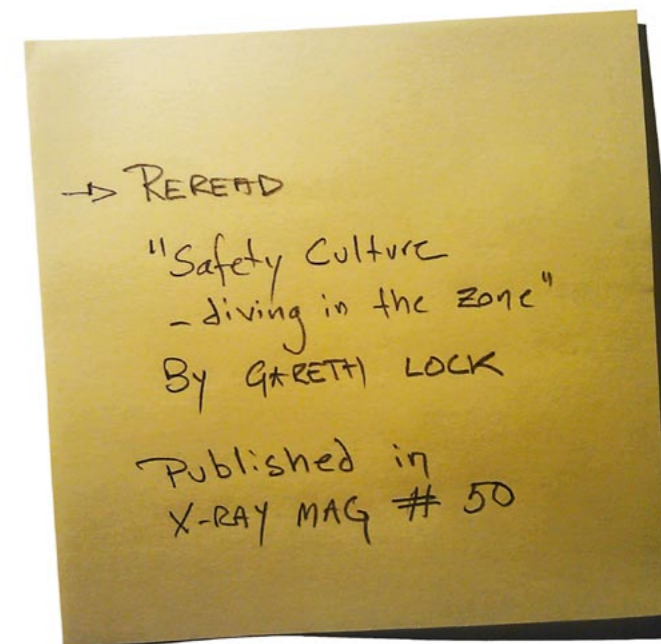 → REREAD
"Safety Culture
- diving in the zone"
By GARETH LOCK
Published in
X-RAY MAG # 50